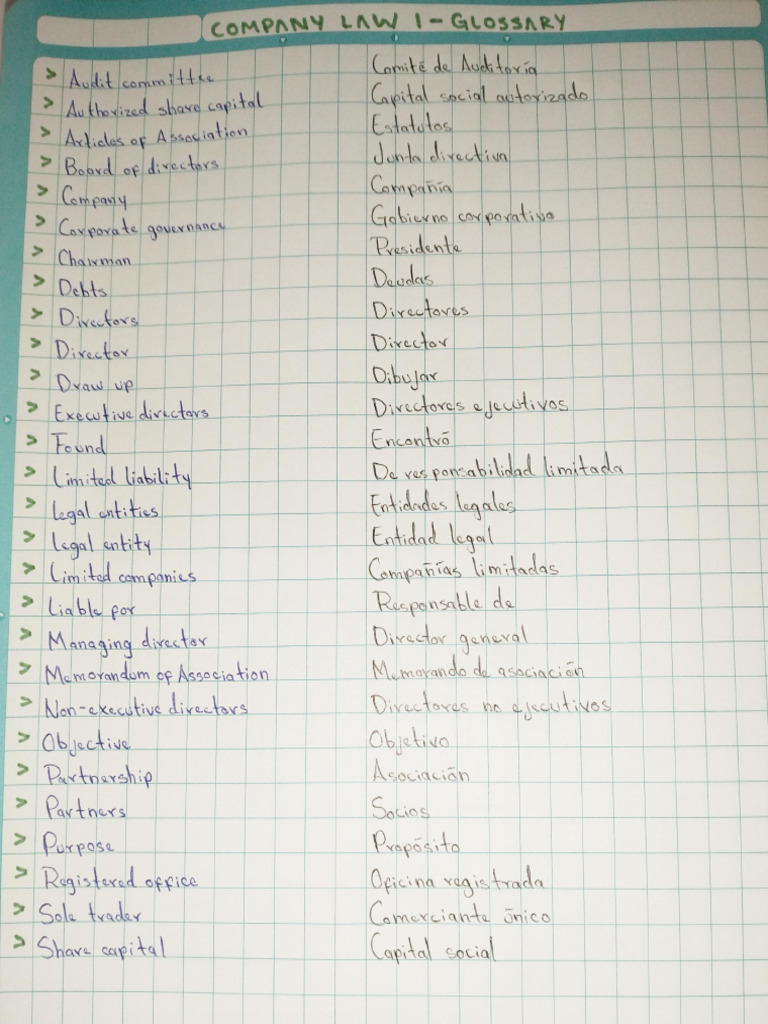 COMPANY LAW 1 - GLOSSARY
> Audit committee Comité de Auditoría
> Authorized share capital Capital social autorizado
> Articles of Association Estatutos
> Board of directors Junta directiva
> Company Compañía
> Corporate governance Gobierno corporativo
> Chairman Presidente
> Debts Deudas
> Directors Directores
> Director Director
> Draw up Dibujar
> Executive directors Directores ejecutivos
> Found Encontró
> Limited liability De responsabilidad limitada
> Legal entities Entidades legales
> Legal entity Entidad legal
> Limited companies Compañías limitadas
> Liable for Responsable de
> Managing director Director general
> Memorandum of Association Memorando de asociación
> Non-executive directors Directores no ejecutivos
> Objective Objetivo
> Partnership Asociación
> Partners Socios
> Purpose Propósito
> Registered office Oficina registrada
> Sole trader Comerciante único
> Share capital Capital social